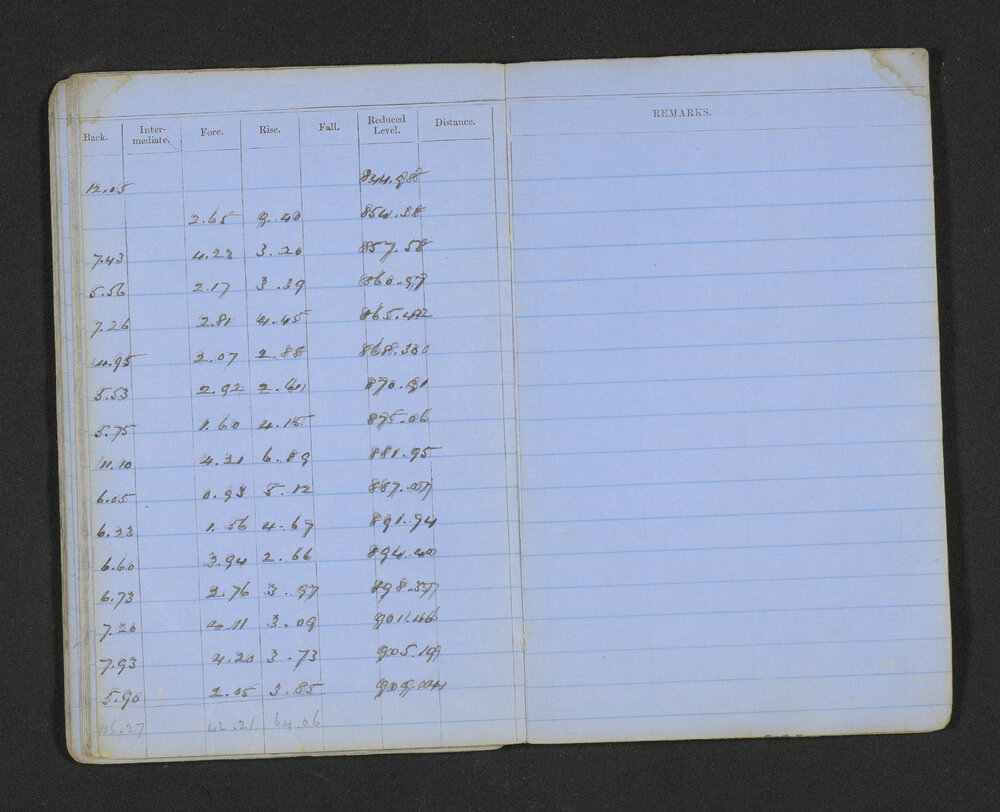 Back. Inter-mediate. Fore. Rise. Fall. Reduced Level. Distance. REMARKS.
12.05 844.98
2.65 9.40 854.38
7.43 4.23 3.20 857.58
5.56 2.17 3.39 860.97
7.26 2.81 4.45 865.42
4.95 2.07 2.88 868.30
5.53 2.92 2.61 870.91
5.75 1.60 4.15 875.06
11.10 4.21 6.89 881.95
6.05 0.93 5.12 887.07
6.23 1.56 4.67 891.74
6.60 3.94 2.66 894.40
6.73 2.76 3.97 898.37
7.20 4.11 3.09 901.46
7.93 4.20 3.73 905.19
5.90 2.05 3.85 909.04
106.27 42.21 64.06